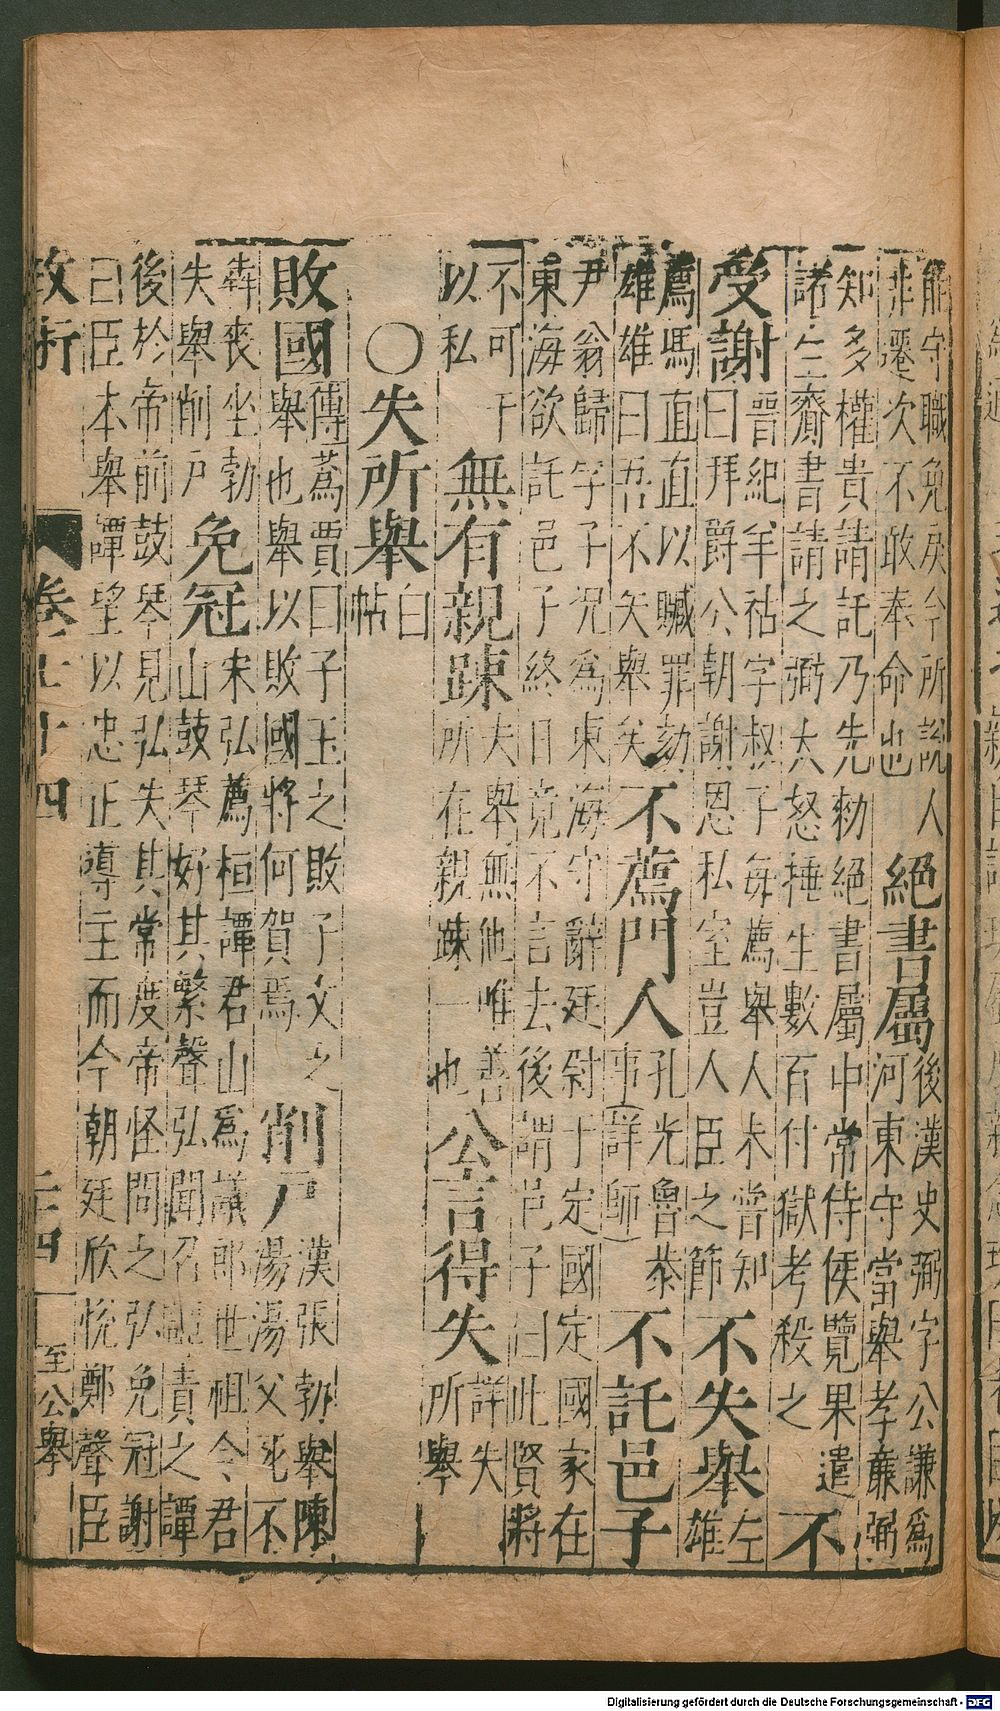 能守職免戾今所説人
非遷次不敢奉命也
絕書屬
後漢史弼字公謙爲
河東守當舉孝廉弼
知多權貴請託乃先勑絕書屬中常侍侯覽果遣
諸生齎書請之弼大怒捶生數百付獄考殺之
不
受謝
晋紀羊祜字叔子每薦舉人未嘗知
曰拜爵公朝謝恩私室豈人臣之節
不失舉
左
雄
薦馮直直以贓罪劾
雄雄曰吾不失舉矣
不薦門人
孔光魯恭
事(詳師)
不託邑子
尹翁歸字子況爲東海守辭廷尉于定國定國家在
東海欲託邑子終日竟不言去後謂邑子曰此賢將
不可干
以私
無有親踈
夫舉無他唯善
所在親踈一也
公言得失
詳失
所舉
〇失所舉
白
帖
敗國
傳蒍賈曰子玉之敗子文之
舉也舉以敗國將何賀焉
削戸
漢張勃舉陳
湯湯父死不
犇喪坐勃
失舉削戸
免冠
宋弘薦桓譚君山爲議郎世祖令君
山鼓琴好其繁聲弘聞召譚責之譚
後於帝前鼓琴見弘失其常度帝怪問之弘免冠謝
曰臣本舉譚望以忠正導主而今朝廷欣悅鄭聲臣
卷七十四
至公舉
Digitalisierung gefördert durch die Deutsche Forschungsgemeinschaft - DFG